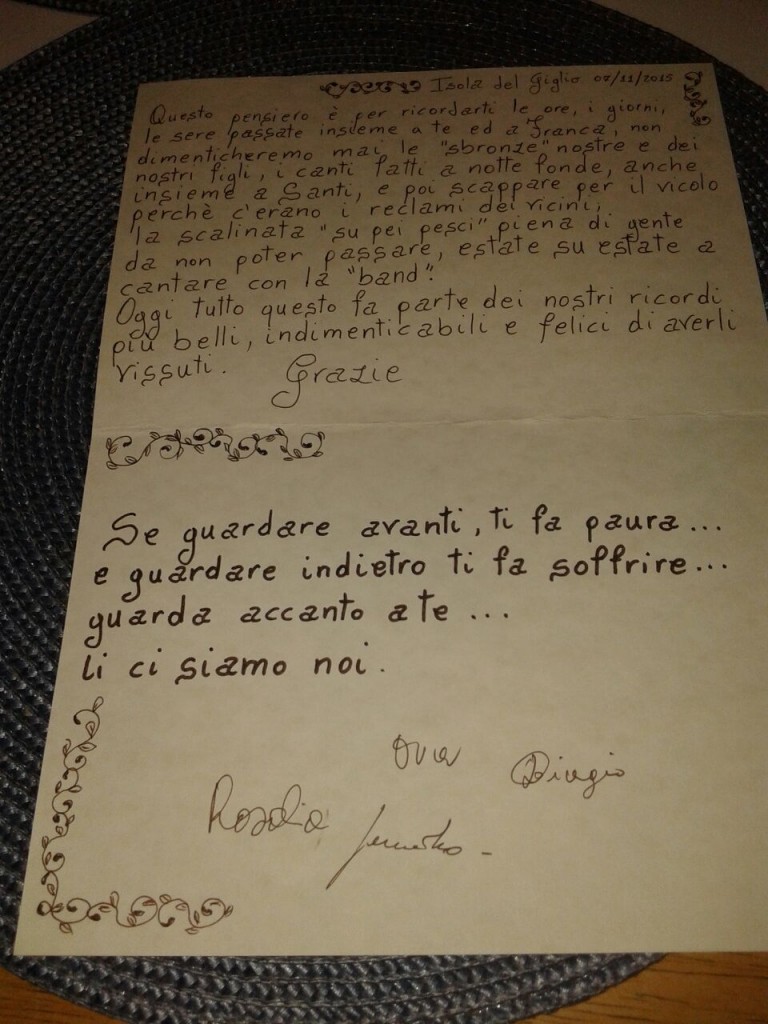 Isola del Giglio 07/11/2015
Questo pensiero è per ricordarti le ore, i giorni,
le sere passate insieme a te ed a Franca, non
dimenticheremo mai le "sbronze" nostre e dei
nostri figli, i canti fatti a notte fonde, anche
insieme a Santi, e poi scappare per il vicolo
perchè c'erano i reclami dei vicini,
la scalinata "su pei pesci" piena di gente
da non poter passare, estate su estate a
cantare con la "band".
Oggi tutto questo fa parte dei nostri ricordi
più belli, indimenticabili e felici di averli
vissuti. Grazie
Se guardare avanti, ti fa paura...
e guardare indietro ti fa soffrire...
guarda accanto a te...
li ci siamo noi.
Biagio
Rosalia